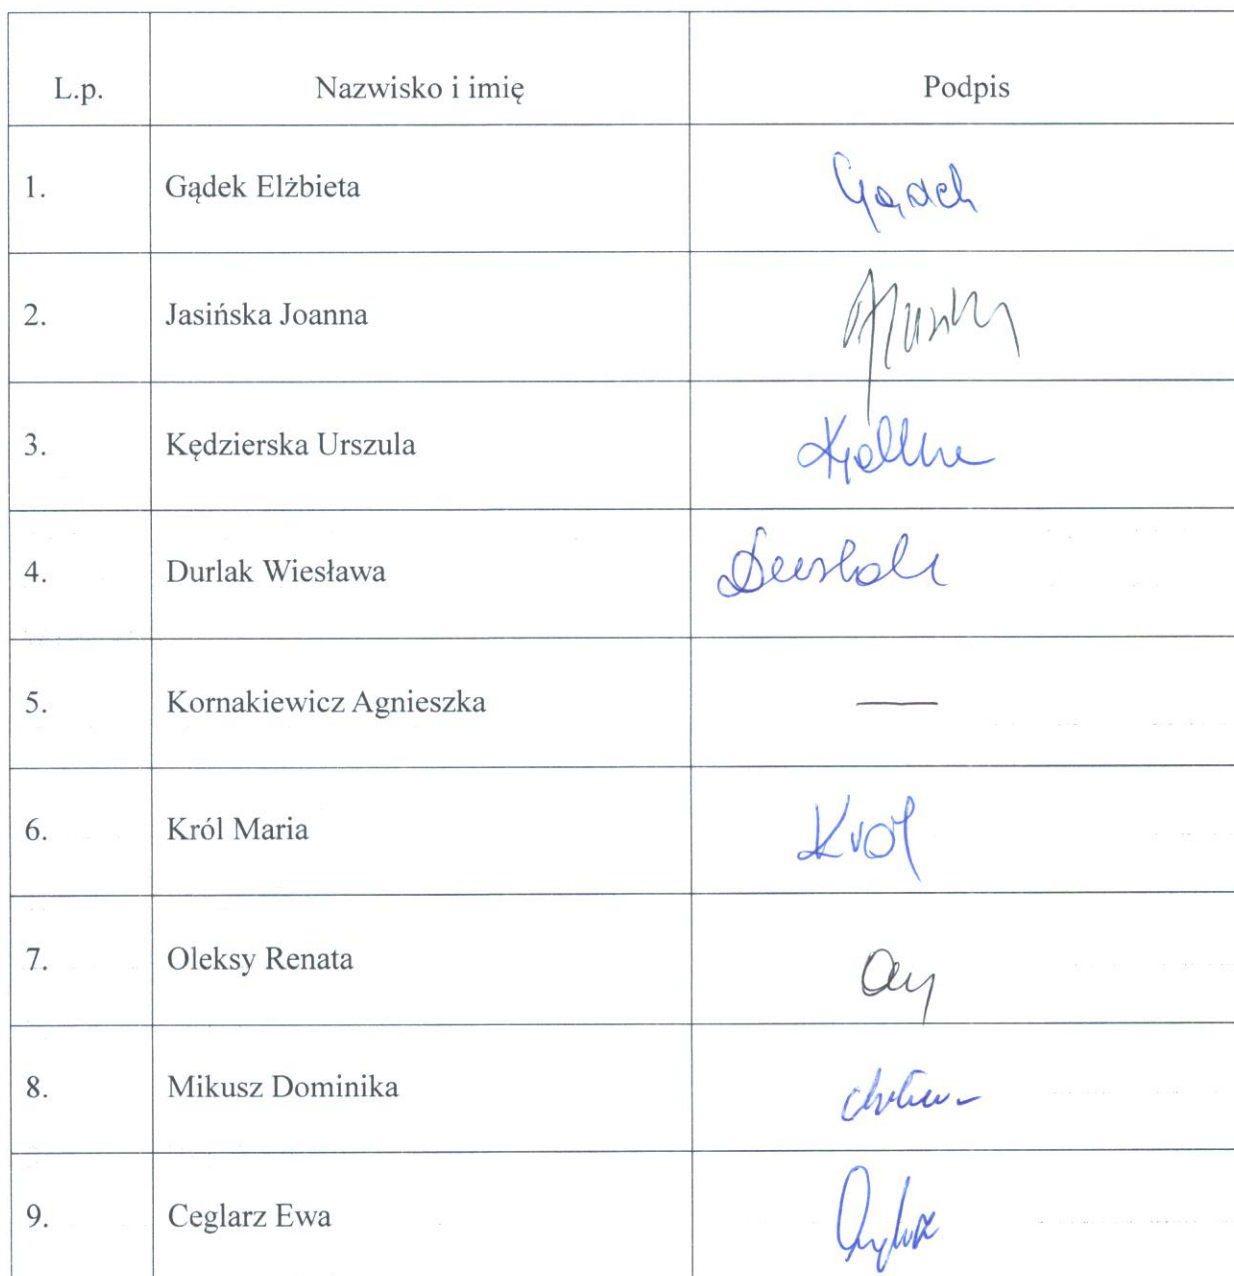 L.p. Nazwisko i imię Podpis
1. Gądek Elżbieta Gądek
2. Jasińska Joanna
3. Kędzierska Urszula
4. Durlak Wiesława
5. Kornakiewicz Agnieszka —
6. Król Maria Król
7. Oleksy Renata
8. Mikusz Dominika
9. Ceglarz Ewa